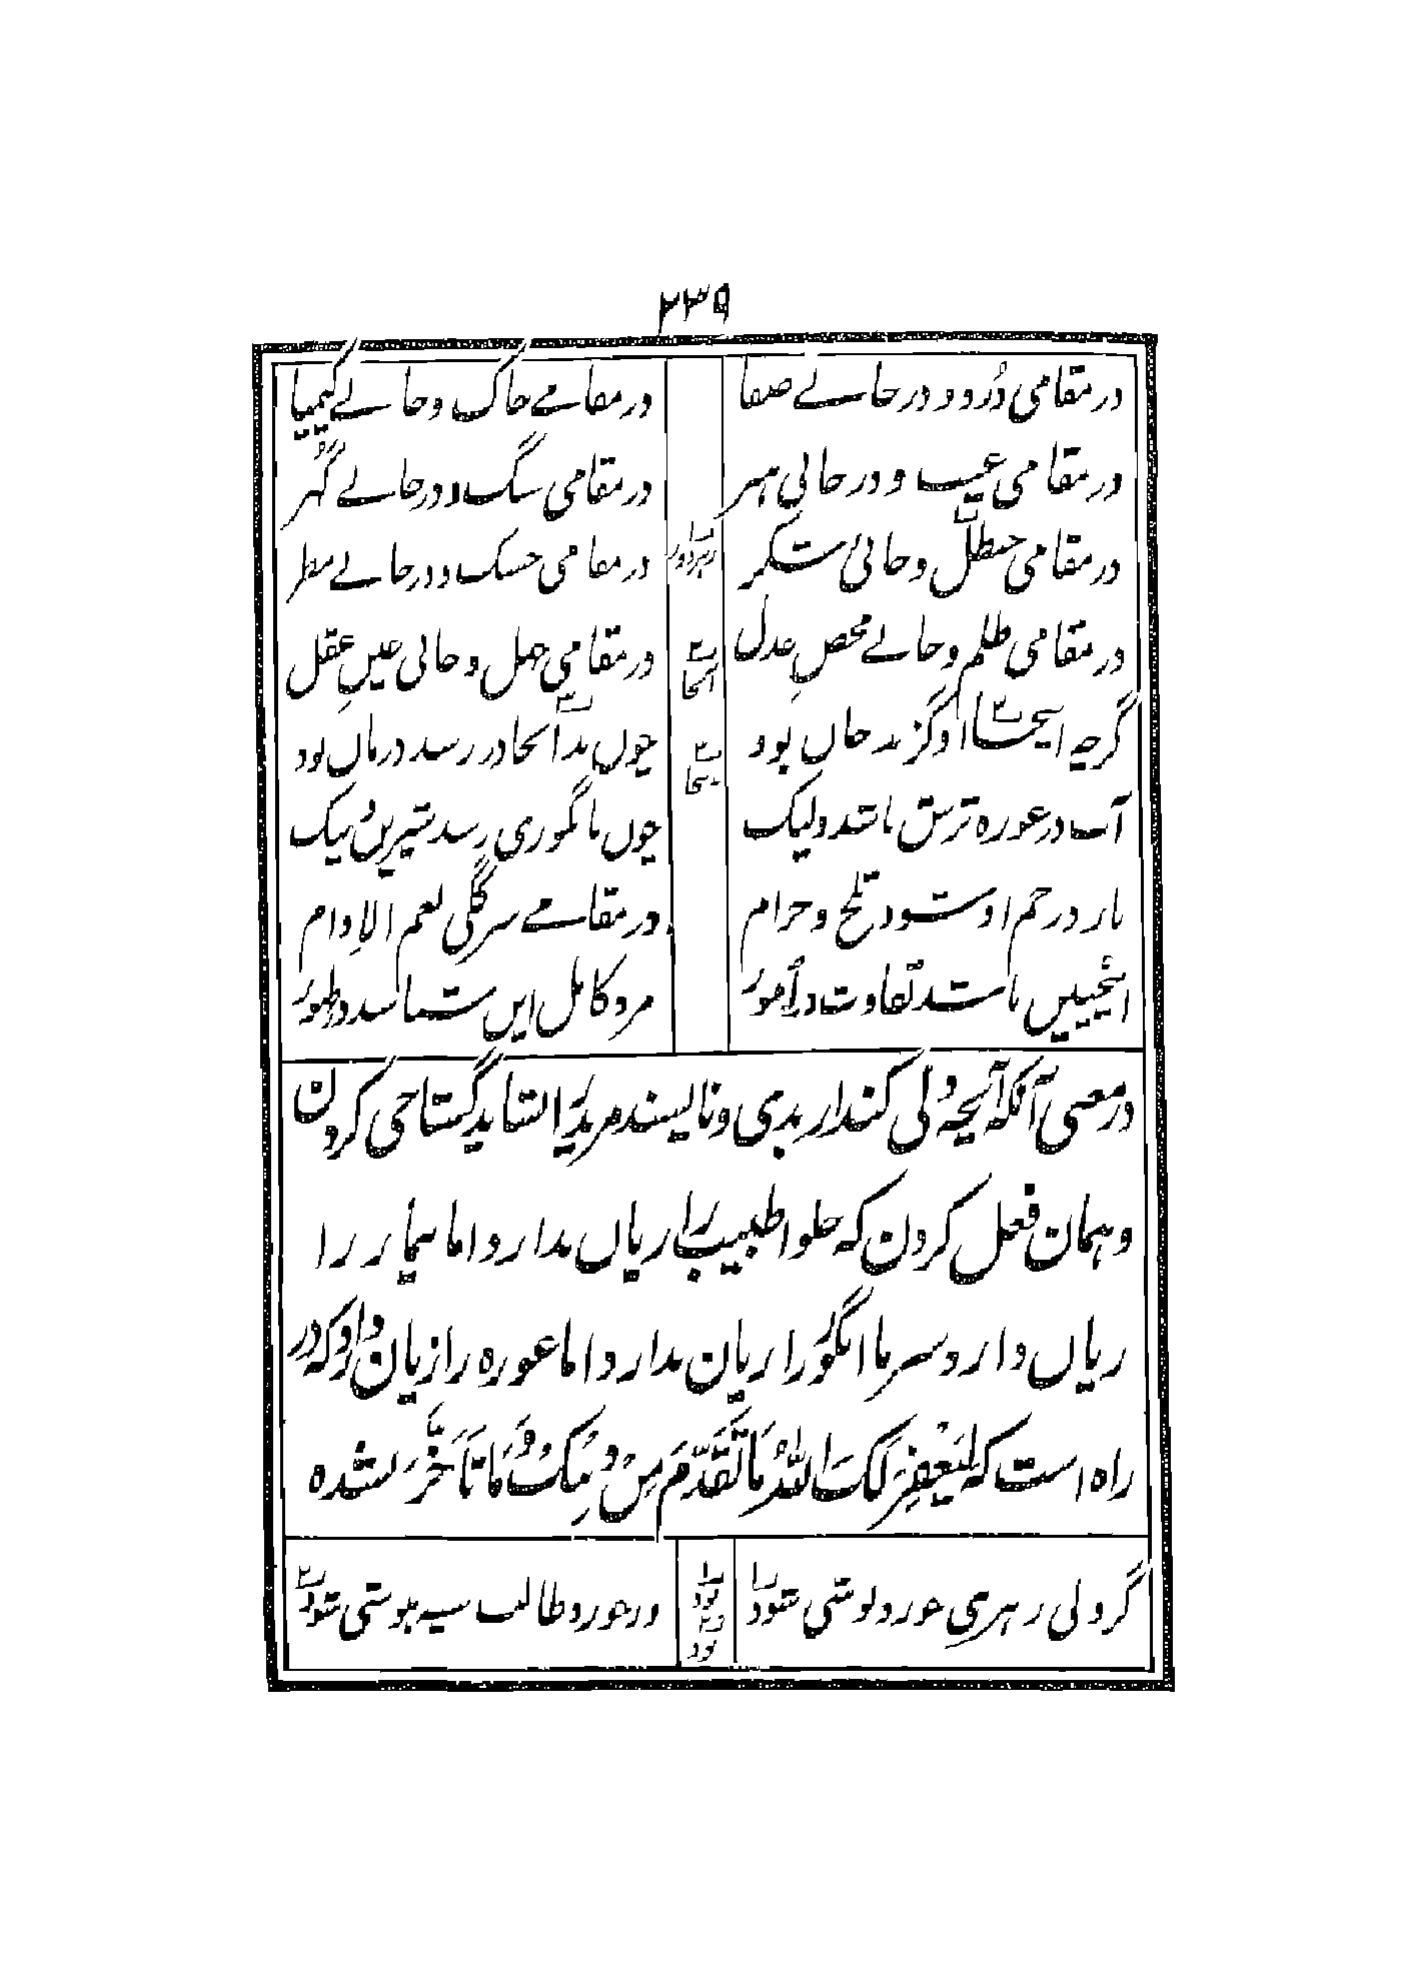 ۲۳۹
در مقامی دُرد و در حالے صفا در مقامے خاک و حالے کیمیا
در مقامی عیب و در حالی هنر در مقامی سنگ و در حالے گُهر
در مقامی حنظل و حالی شکر در مقامی خشک و در حالے مطر
در مقامی ظلم و حالے محضِ عدل در مقامی جهل و حالی عینِ عقل
گرچه اینجا او گزند جان بود چون بدآنجا در رسد درمان بود
آب در غوره ترش باشد ولیک چون بانگوری رسد شیرین و نیک
باز در خم او شود تلخ و حرام در مقامے سرکگی نعم الاِدام
اینچنین باشد تفاوت در اُمور مرد کامل این شناسد در ظهور
در معنی آنکه آنچه ولی کند از بدی و ناپسند مرید را نشاید گستاخی کردن
و همان فعل کردن که حلوا طبیب را زیان ندارد اما بیمار را
زیان دارد و سرما انگور را زیان ندارد اما غوره را زیان دارد که در
راه است که لِیَغْفِرَ لَکَ اللّٰهُ مَا تَقَدَّمَ مِنْ ذَنْبِکَ وَمَا تَأَخَّرَ نشده
گر ولی زهری خورد نوشی شود ور خورد طالب سیه هوشی شود